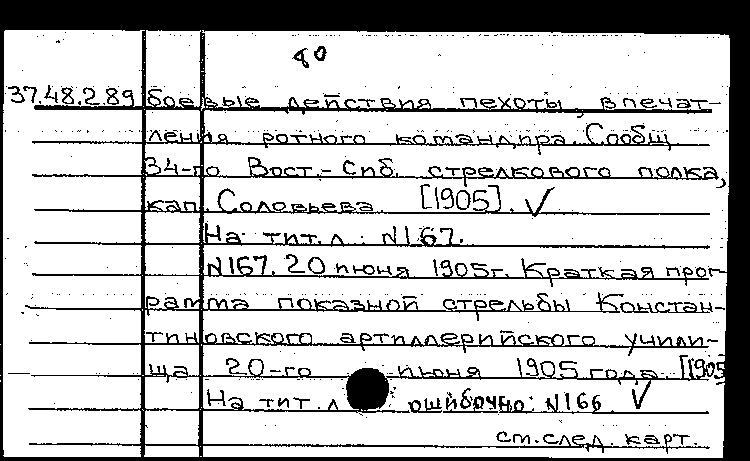 80
37.48.2.89 боевые действия пехоты, впечат-
ления ротного командира. Сообщ.
34-го Вост.-Сиб. стрелкового полка,
кап. Соловьева. [1905]. ✓
На тит. л.: N167.
N167. 20 июня 1905г. Краткая прог-
рамма показной стрельбы Констан-
тиновского артиллерийского учили-
ща 20-го июня 1905 года. [1905
На тит. л ошибочно: N166. ✓
см. след. карт.